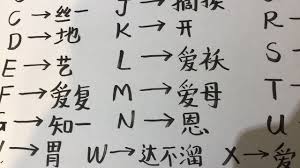 C→丝一 J→揭挨
D→地 K→开 R→
E→艺 L→爱袄 S→
F→爱复 M→爱母 T→
G→知一 N→恩 U
→胃 W→达不溜 X→爱